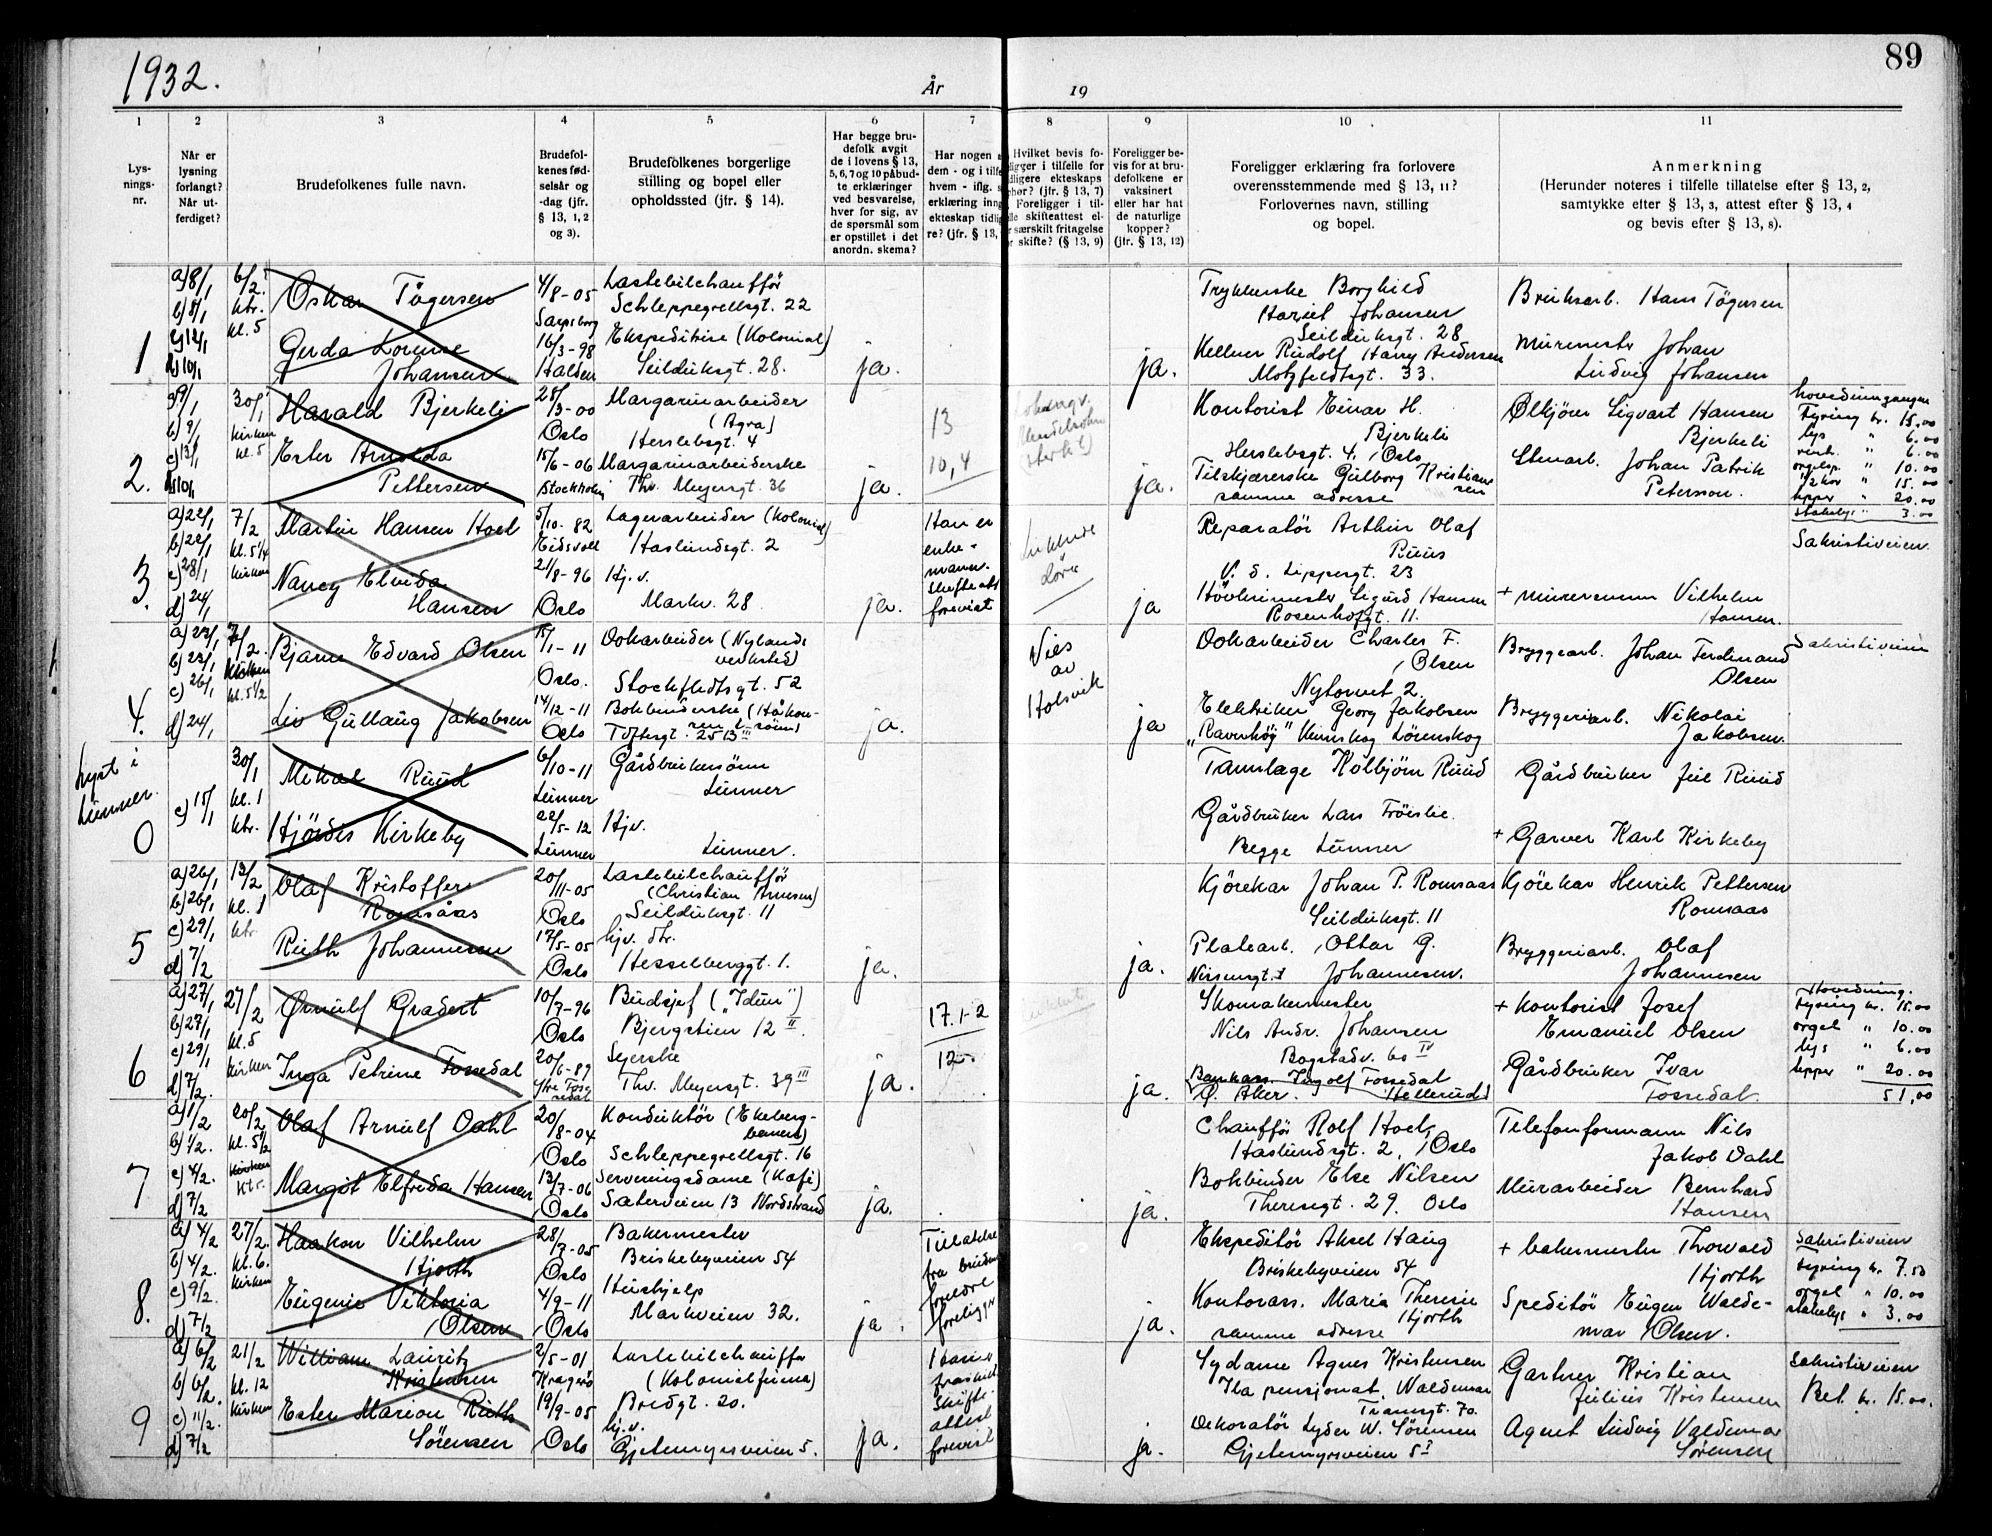 1932.
År
19
89
1
2
3
4
5
6
7
8
9
10
11
Lys-
nings-
nr.
Når er
lysning
forlangt?
Når ut-
ferdiget?
Brudefolkenes fulle navn.
Brudefol-
kenes fød-
selsår og
-dag (jfr.
§ 13, 1, 2
og 3).
Brudefolkenes borgerlige
stilling og bopel eller
opholdssted (jfr. § 14).
Har begge bru-
defolk avgit
de i lovens § 13,
5, 6, 7 og 10 påbud-
te erklæringer
ved besvarelse,
hver for sig, av
de spørsmål som
er opstillet i det
anordn. skema?
Har nogen a
dem - og i tilfe
hvem - iflg. s
erklæring inng
ekteskap tidlig
re? (jfr. § 13,
Hvilket bevis fo-
ligger i tilfelle for
dligere ekteskaps
phør? (jfr. § 13, 7)
Foreligger i til-
lle skifteattest el-
r særskilt fritagelse
or skifte? (§ 13, 9)
Foreligger be-
vis for at bru-
defolkene er
vaksinert
eller har hat
de naturlige
kopper?
(jfr. § 13, 12)
Foreligger erklæring fra forlovere
overensstemmende med § 13, 11?
Forlovernes navn, stilling
og bopel.
Anmerkning
(Herunder noteres i tilfelle tillatelse efter § 13, 2,
samtykke efter § 13, 3, attest efter § 13, 4
og bevis efter § 13, 8).
1
a) 8/1
b) 8/1
c) 12/1
d) 10/1
6/2.
ktr.
kl. 5
Oskar Tögersen
Gerda Lovise
Johansen
4/8-05
Sarpsborg
16/3-98
Halden
Lastebilchauffør
Schleppegrellsgt. 22
Ekspeditrise (Kolonial)
Seilduksgt. 28.
ja.
ja.
Trykkerske Borghild
Hariet Johansen
Seilduksgt. 28
Kellner Rudolf Harry Andersen
Motzfeldtsgt. 33.
Bruksarb. Hans Tögersen
Murmestr Johan
Ludvig Johansen
2.
a) 9/1
b) 9/1
c) 13/1
d) 10/1
30/1
kirken
kl. 5
Harald Bjerkeli
Ester Arnolda
Pettersen
28/3-00
Oslo
15/6-06
Stockholm
Margarinarbeider
(Agra)
Herslebsgt. 4
Margarinarbeiderske
Thv. Meyersgt. 36
ja.
13
10,4
ja.
Kontorist Einar H.
Bjerkeli
Herslebsgt. 4, Oslo
Tilskjærerske Gulborg Kristian
sen
samme adresse
Ölkjörer Sigvart Hansen
Bjerkeli
Stenarb. Johan Patrik
Peterson.
hovedinngangen
Fyring kr. 15.00
lys " 6.00
renh. " 6.00
orgelsp. " 10.00
" 15.00
tepper " 20.00
stakelys " 3.00
3.
a) 22/1
b) 22/1
c) 28/1
d) 24/1
7/2
kl. 5 1/4
kirken
Martin Hansen Hoel
Nancy Elvida
Hansen
5/10-82
Eidsvoll
21/8-96
Oslo
Lagerarbeider (Kolonial)
Haslundsgt. 2
Hj. v.
Markv. 28.
ja.
Han er
enke-
mann.
Skifteatt
forevist
Lukkede
dører
ja
Reparatör Arthur Olaf
Ruus
V. d. Lippesgt. 23
Hövleimestr Sigurd Hansen
Rosenhofgt. 11.
+ murersvenn Vilhelm
Hansen.
Sakristiveien
4.
a) 23/1
b) 23/1
c) 26/1
d) 24/1
7/2.
Kirken
kl. 5 1/2
Bjarne Edvard Olsen
Liv Gullaug Jakobsen
15/1-11
Oslo.
14/12-11
Oslo
Dokarbeider (Nylands
verksted)
Stockfledtsgt. 52
Bokbinderske (Håkon-
sen & sönn)
Toftesgt. 25 B III
ja.
Nils
av
Holsvik
ja
Dokarbeider Charles F.
Olsen
Nytorvet 2.
Elektriker Georg Jakobsen
"Ravnhög" Kurskog Lørenskog
Bryggearb. Johan Ferdinand
Olsen
Bryggeriarb. Nikolai
Jakobsen.
Sakristiveien
Lyst i
Lunner.
0
c) 15/1
30/1
kl. 1
ktr.
Mikal Ruud
Hjördis Kirkeby
6/10-11
Lunner
22/5-12
Lunner
Gårdbrukersönn
Lunner
Hjv.
Lunner.
Tannlæge Kolbjörn Ruud
Gårdbruker Lars Fröislie.
Begge Lunner
Gårdbruker Juel Ruud
+ Garver Karl Kirkeby
5
a) 26/1
b) 26/1
c) 29/1
d) 7/2
13/2
kl. 1
ktr
Olaf Kristoffer
Romsaas
Ruth Johannesen
20/11-05
Oslo
17/5-05
Oslo
Lastebilchauffør
(Christian Arnesen)
Seilduksgt. 11
hjv. dtr.
Hesselberggt. 1.
ja.
ja.
Kjörekar Johan P. Romsaas
Seilduksgt. 11
Platearb. Ottar G.
Nissensgt. 1 Johannesen.
Kjörekar Henrik Pettersen
Romsaas
Bryggeriarb. Olaf
Johannesen
6
a) 27/1
b) 27/1
c) 29/1
d) 7/2.
27/2
kl. 5
kirken
Ørnulf Gradert
Inga Petrine Fossedal
10/7-96
Oslo
20/6-89
Ytre Fos-
sedal
Budsjef ("Idun")
Bjergstien 12 II
Syerske
Thv. Meyersgt. 39 III
ja.
17.1-2
ja.
Skomakermester
Nils Andr. Johansen
Bogstadv. 60 IV
Bankass. Ingolf Fossedal
Ö. Aker. Hellerud
+ Kontorist Josef
Emanuel Olsen
Gårdbruker Ivar
Fossedal.
Hovedinng.
Fyring kr. 15.00
orgel " 10.00
lys " 6.00
tepper " 20.00
51,00
7
a) 1/2
b) 1/2.
c) 4/2.
d) 7/2
20/2
kl. 5 1/2
Kirken
Ktr.
Olaf Arnulf Dahl
Margit Elfrida Hansen
20/8-04
Oslo
13/7-06
Oslo
Konduktör (Ekeberg-
banen)
Schleppegrellsgt. 16
Serveringsdame (Kafé)
Sæterveien 13 Nordstrand
ja.
ja.
Chauffør Rolf Hoel,
Haslundsgt. 2, Oslo
Bokbinder Else Nilsen
Theresgt. 29. Oslo
Telefonformann Nils
Jakob Dahl
Murarbeider Bernhard
Hansen
8.
a) 4/2
b) 4/2.
c) 9/2.
d) 7/2
27/2.
kl. 6.
Kirken
Haakon Vilhelm
Hjorth
Eugenie Viktoria
Olsen
28/7-05
Oslo
4/9-11
Oslo
Bakermester
Briskebyveien 54
Hushjelp
Markveien 32.
ja.
Tillatelse
fra brudens
foreldre
foreligger
ja.
Ekspeditör Aksel Haug
Briskebyveien 54
Kontorass. Maria Therese
Hjorth
samme adresse
+ bakermestr Thorvald
Hjorth
Speditör Eugen Walde-
mar Olsen.
Sakristiveien
Fyring kr. 7.50
orgel " 10.00
stakelys " 3.00
9
a) 6/2
b) 6/2.
c) 11/2.
d) 7/2
21/2
kl. 12
Kirken
William Lauritz
Kristensen
Ester Marion Ruth
Sörensen
2/5-01
Kragerö
19/9-05
Oslo
Lastebilchauffør
(Kolonialfirma)
Bredgt. 20.
hj.v.
Gjetemyrsveien 5.
ja.
Han er
fraskilt
Skifte-
attest
forevist
ja.
Sydame Agnes Kristensen
Ila pensjonat, Waldemar
Tranesgt. 70.
Dekoratör Lyder W. Sörensen
Gjetemyrsveien 5 I
Gartner Kristian
Julius Kristensen
Agent Ludvig Valdemar
Sörensen
Sakristiveien
Bet. kr. 15.00.